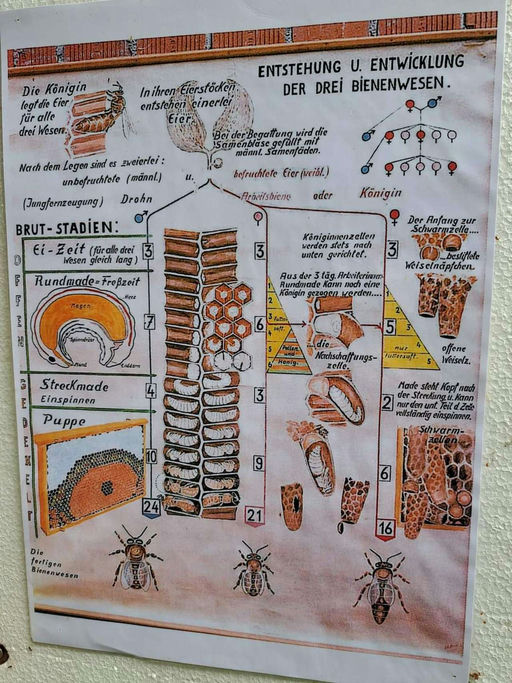 ENTSTEHUNG U. ENTWICKLUNG
DER DREI BIENENWESEN.
Die Königin
legt die Eier
für alle
drei Wesen.
In ihren Eierstöcken
entstehen einerlei
Eier.
Bei der Begattung wird die
Samenblase gefüllt mit
männl. Samenfäden.
Nach dem Legen sind es zweierlei:
unbefruchtete (männl.)
u.
befruchtete Eier (weibl.)
(Jungfernzeugung)
Drohn
Arbeitsbiene
oder
Königin
BRUT-STADIEN:
Ei-Zeit (für alle drei
Wesen gleich lang)
3
3
3
Königinnenzellen
werden stets nach
unten gerichtet.
Der Anfang zur
Schwarmzelle....
...bestiftete
Weiselnäpfchen.
Rundmade=Freßzeit
Herz
Magen
Spinndrüse
Mund
Enddarm
7
6
5
Aus der 3 täg. Arbeiterinnen-
Rundmade kann noch eine
Königin gezogen werden....
1
2
3 Futter-
saft.
4
5 Pollen
und
6 Honig.
....die
Nachschaffungs-
zelle.
1
2
3
4
nur
5 Futtersaft.
offene
Weiselz.
Streckmade
Einspinnen
4
3
2
Made steht Kopf nach
der Streckung u. kann
nur den unt. Teil d. Zelle
vollständig einspinnen.
Puppe
10
9
6
Schwarm-
zellen.
24
21
16
Die
fertigen
Bienenwesen